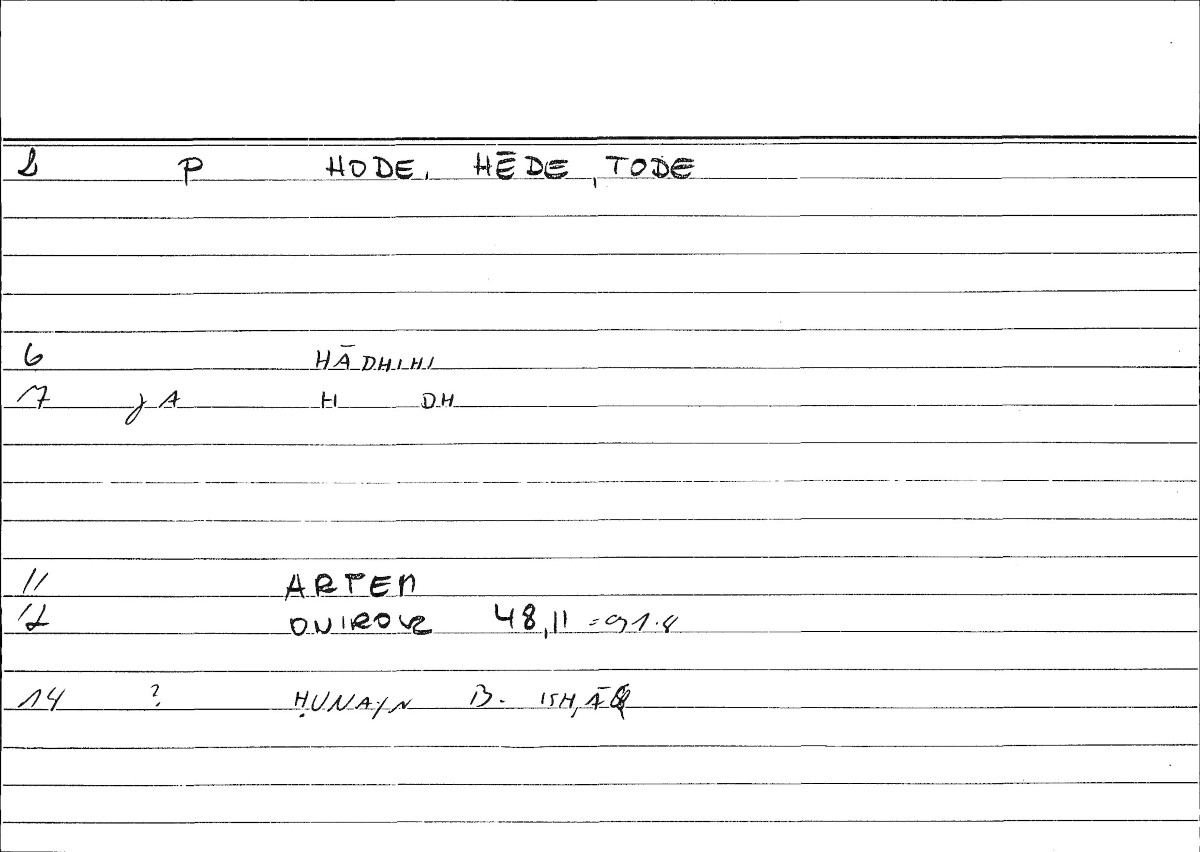 1 P HODE, HĒDE, TODE
6 HĀDHIHI
7 jA H DH
11 ARTEM
12 ONIROCR 48,11 = 91.8
14 ? ḤUNAYN B. ISḤĀQ